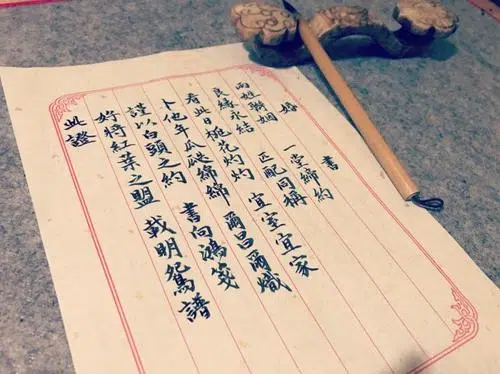 婚 書
兩姓聯姻 一堂締約
良緣永結 匹配同稱
看此日桃花灼灼 宜室宜家
卜他年瓜瓞綿綿 爾昌爾熾
謹以白頭之約 書向鴻箋
好將紅葉之盟 載明鴛譜
此證